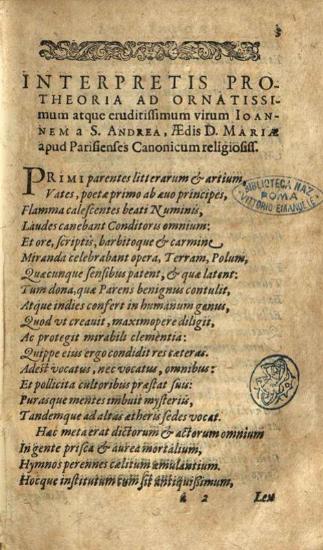 3
INTERPRETIS PRO-
THEORIA AD ORNATISSI-
mum atque eruditissimum virum IOAN-
NEM a S. ANDREA, Ædis D. MARIÆ
apud Parisienses Canonicum religiosiss.
PRIMI parentes litterarum & artium,
Vates, poetæ primo ab ævo principes,
Flamma calescentes beati Numinis,
Laudes canebant Conditoris omnium:
Et ore, scriptis, barbitoque & carmine
Miranda celebrabant opera, Terram, Polum,
Quæcunque sensibus patent, & quæ latent:
Tum dona, quæ Parens benignus contulit,
Atque indies confert in humanum genus,
Quod vt creauit, maximopere diligit,
Ac protegit mirabili clementia:
Quippe eius ergo condidit res cæteras.
Adest vocatus, nec vocatus, omnibus:
Et pollicita cultoribus præstat suis:
Purasque mentes imbuit mysteriis,
Tandemque ad altas ætheris sedes vocat.
Hac meta erat dictorum & actorum omnium
In gente prisca & aurea mortalium,
Hymnos perennes cælitum æmulantium.
Hocque institutum cum sit antiquissimum,
a 2 Lex
BIBLIOTECA NAZ
ROMA
VITTORIO EMANUELE